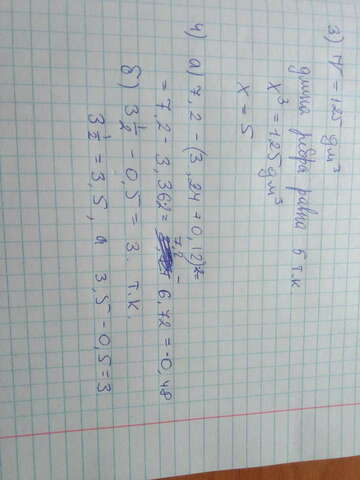 3) V = 125 дм³
длина ребра равна 5 т.к.
x³ = 125 дм³
x = 5
4) а) 7,2 - (3,24 + 0,12)2 =
= 7,2 - 3,36·2 = 7,2 - 6,72 = -0,48
б) 3 1/2 - 0,5 = 3. т.к.
3 1/2 = 3,5, а 3,5 - 0,5 = 3